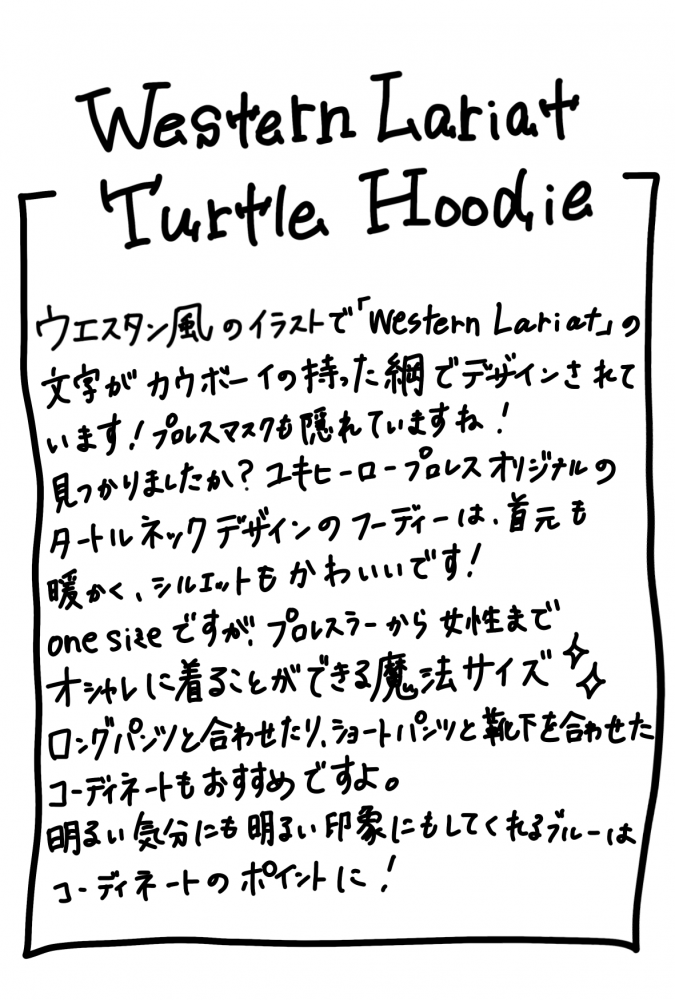 Western Lariat
Turtle Hoodie
ウエスタン風のイラストで「Western Lariat」の
文字がカウボーイの持った綱でデザインされて
います!プロレスマスクも隠れていますね!
見つかりましたか?ユキヒーロープロレスオリジナルの
タートルネックデザインのフーディーは、首元も
暖かく、シルエットもかわいいです!
one sizeですが、プロレスラーから女性まで
オシャレに着ることができる魔法サイズ✨
ロングパンツと合わせたり、ショートパンツと靴下を合わせた
コーディネートもおすすめですよ。
明るい気分にも明るい印象にもしてくれるブルーは
コーディネートのポイントに!